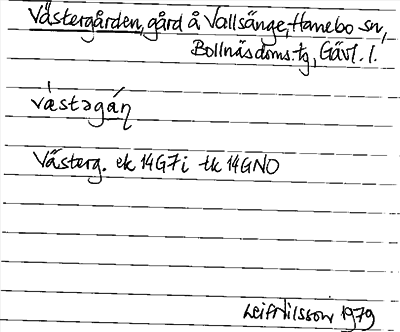 Västergården, gård å Vallsänge, Hanebo sn,
Bollnäs doms. tg, Gävl. l.
västəgáɳ
Västerg. ek 14G7i tk 14GNO
Leif Nilsson 1979